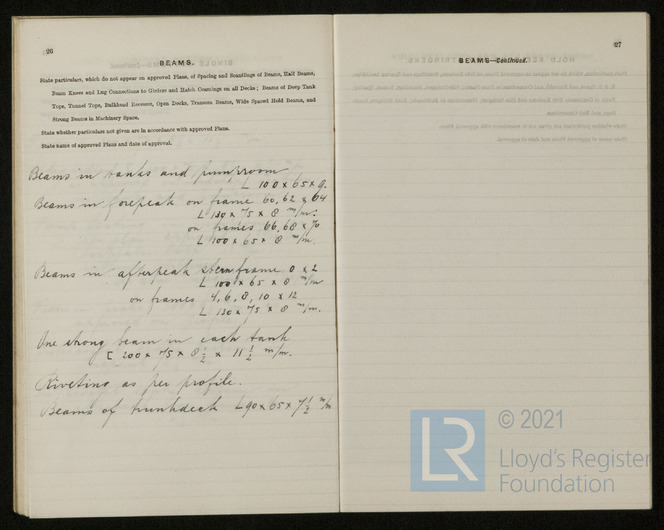 26
BEAMS.
State particulars, which do not appear on approved Plans, of Spacing and Scantlings of Beams, Half Beams,
Beam Knees and Lug Connections to Girders and Hatch Coamings on all Decks; Beams of Deep Tank
Tops, Tunnel Tops, Bulkhead Recesses, Open Decks, Transom Beams, Wide Spaced Hold Beams, and
Strong Beams in Machinery Space.
State whether particulars not given are in accordance with approved Plans.
State name of approved Plans and date of approval.
Beams in tanks and pumproom
L 100 x 65 x 9.
Beams in forepeak on frame 60, 62 x 64
L 130 x 75 x 8 m/m.
on frames 66, 68 x 70
L 100 x 65 x 8 m/m.
Beams in afterpeak stern frame 0 x 2
L 100 x 65 x 8 m/m
on frames 4, 6, 8, 10 x 12
L 130 x 75 x 8 m/m.
One strong beam in each tank
[ 200 x 75 x 8½ x 11½ m/m.
Riveting as per profile.
Beams of trunkdeck L 90 x 65 x 7½ m/m
27
BEAMS—Continued.
LR
© 2021
Lloyd's Register
Foundation